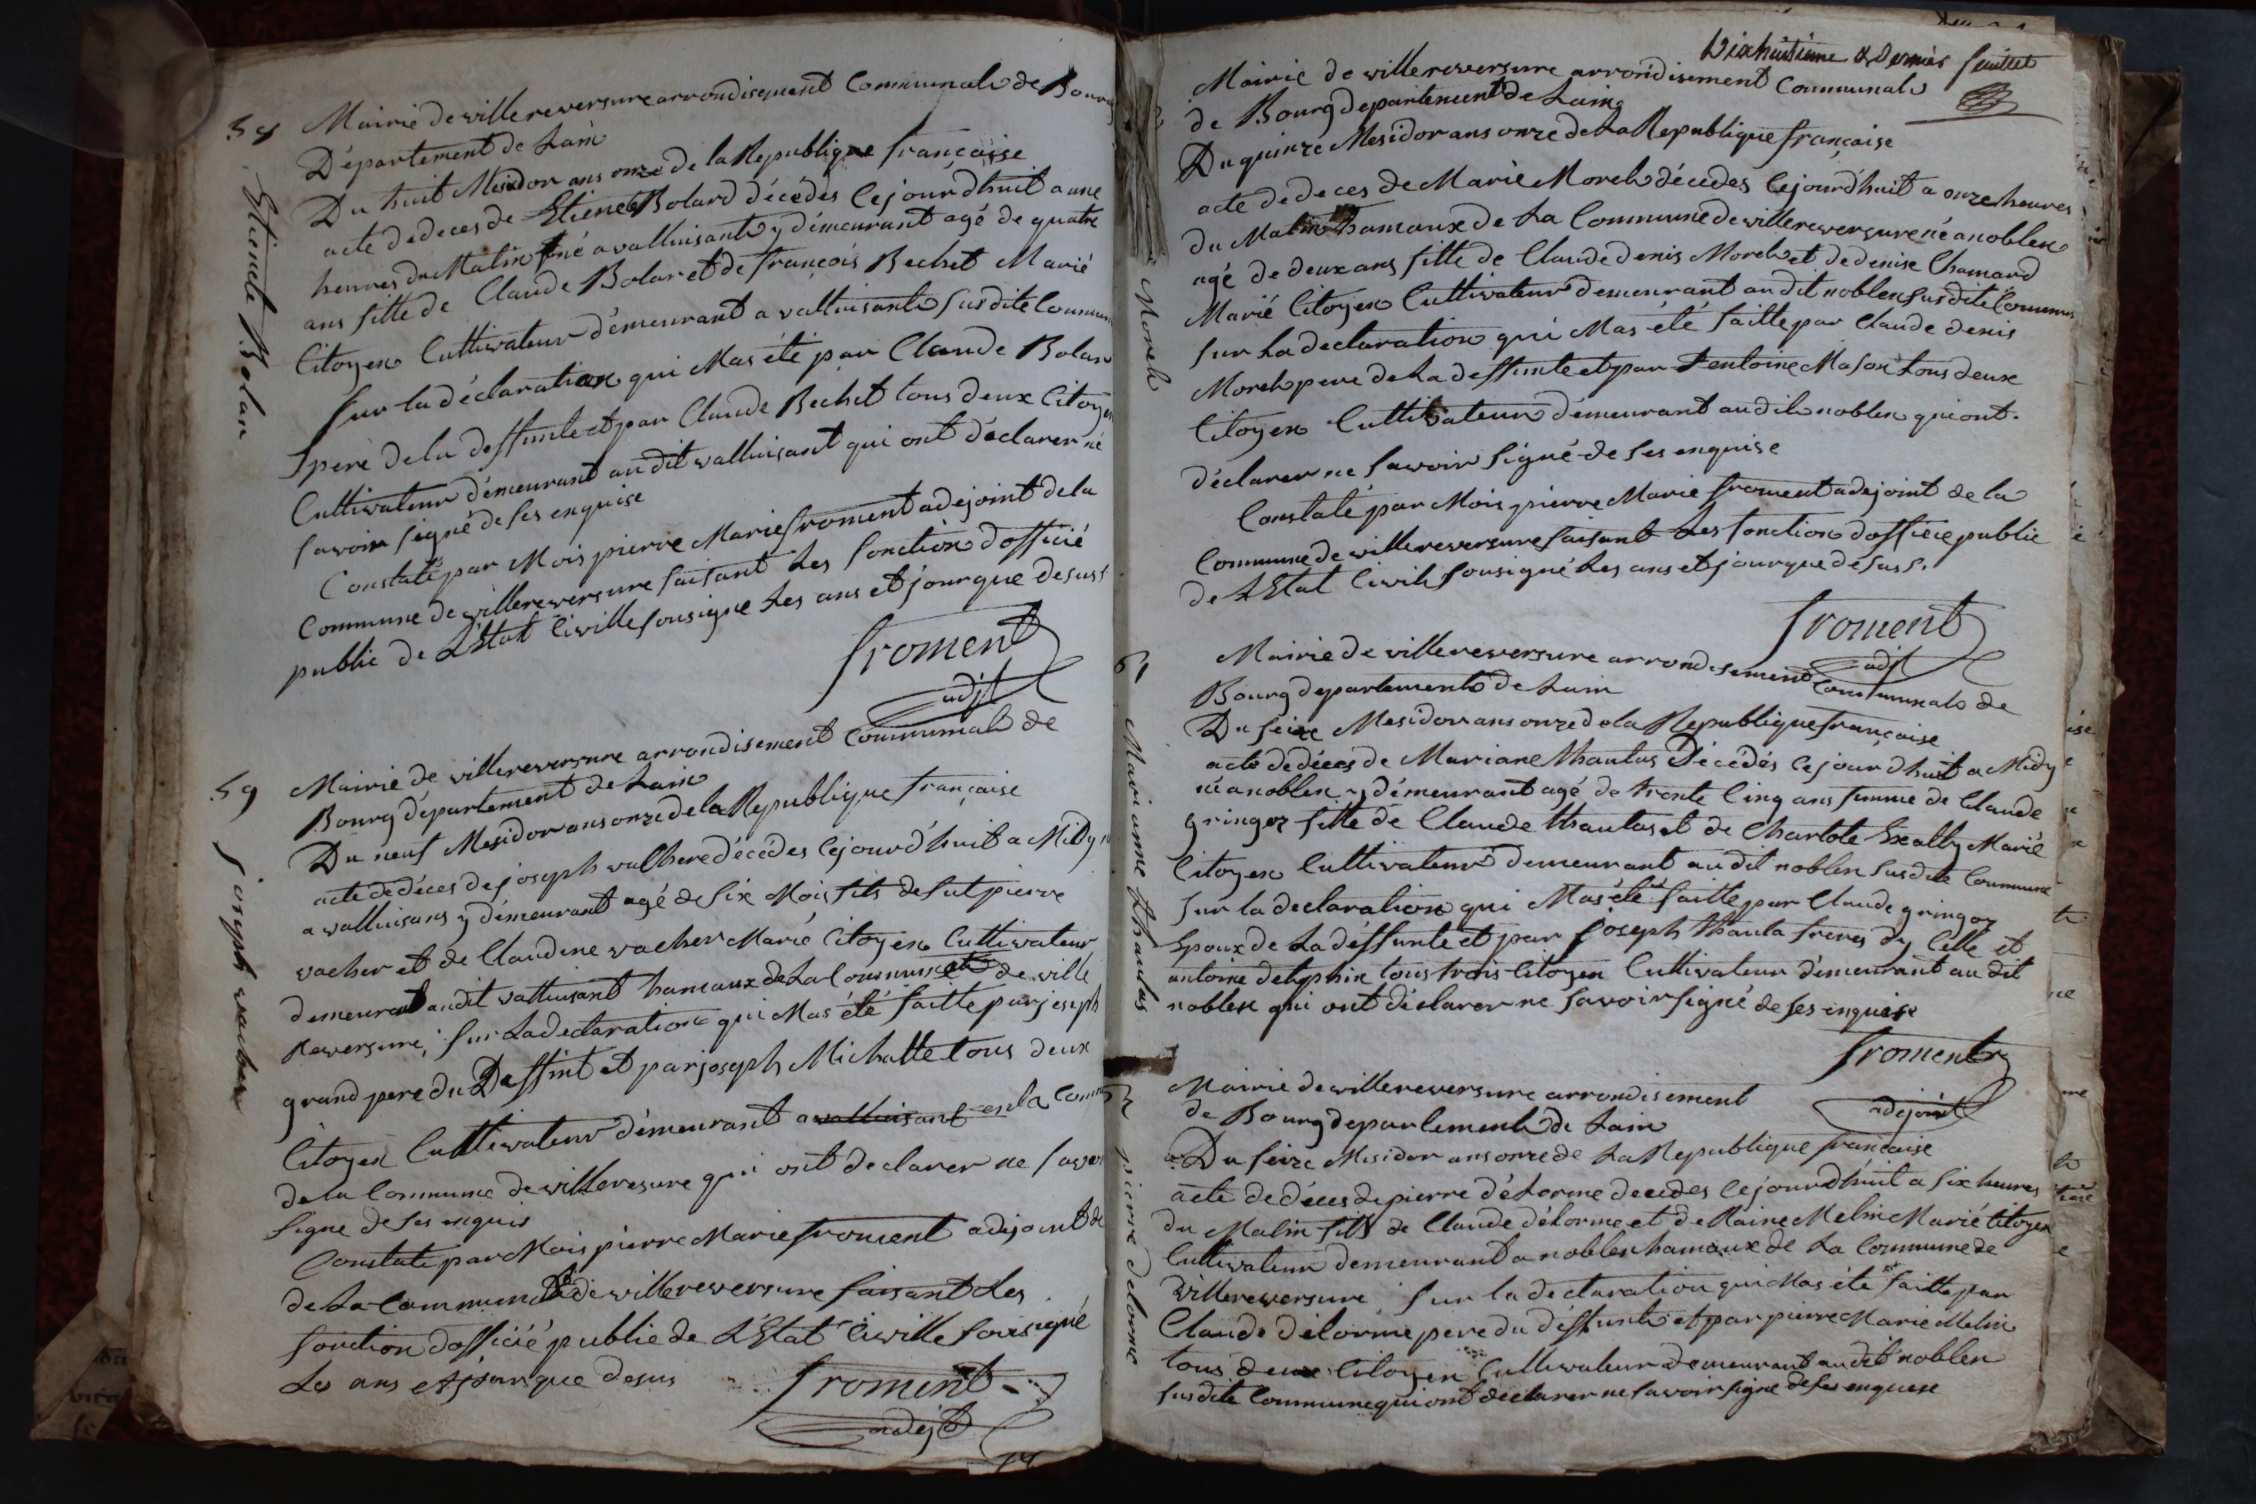 58
Etienete Bolar
Mairie de villereversure arrondisement Communale de Bourg
Département de Lain
Du huit Mesidor ans onze de la Republique française
acte de deces de Etienete Bolard décédés Cejourdhuit a une
heures du Matin né a valluisant y démeurant agé de quatre
ans fille de Claude Bolar et de françois Bechet Marié
Citoyen Cultivateur démeurant a valluisant susdite Commun
sur la déclaration qui Mas été par Claude Bolar
pere de la deffunte et par Claude Bechet tous deux Citoyen
Cultivateur démeurant au dit valluisant qui ont déclarer ne
savoir signé de ses enquise
Constaté par Mois pierre Marie froment adejoint de la
Commune de villereversure faisant Les fonction dofficié
public de LEtat Civille sousigne Les ans et jour que desuss
froment
adjt
59
joseph vacher
Mairie de villereversure arrondisement Communale de
Bourg département de Lain
Du neuf Mesidor ans onze de la Republique française
acte de déces de joseph vachere décédes Cejourd'huit a Midy
a valluisans y démeurant agé de six Mois fils de fut pierre
vacher et de Claudine vacher Marié Citoyen Cultivateur
demeurant audit valluisant hameaux de La Commune de ville
Reversure, sur La declaration qui Mas été faitte par joseph
grand pere du Deffint et par joseph Michalle tous deux
Citoyen Cultivateur démeurant a valluisant en la Comm
de la Commune de villeresure qui ont declarer ne savoir
signe de ses enquis
Constate par Mois pierre Marie froment adejoint de
de La Commune de villereversure faisant Les
fonction dofficié public de LEtat Civille sousigné
Les ans et jour que desus
froment
adejt
Dixhuitième & Dernier feuillet
Morel
Mairie de villereversure arrondisement Communale
de Bourg departement de Laing
Du quinze Mesidor ans onze de La Republique française
acte de deces de Marie Morel décédes Cejourdhuit a onze heures
du Matin hameaux de La Commune de villereversure né a noblen
agé de deux ans fille de Claude denis Morel et de denise Chamard
Marié Citoyen Cultivateur demeurant au dit noblen susdite Commune
sur La declaration qui Mas été faitte par Claude denis
Morel pere de La deffunte et par Mason tous deux
Citoyen Cultivateur démeurant audit noblen qui ont
déclarer ne savoir signé de ses enquise
Constaté par Mois pierre Marie froment adejoint de la
Commune de villereversure faisant Les fonction dofficié public
de LEtat Civile sousigné Les ans et jour que désuss.
froment
adjt
61
Marianne thaulas
Mairie de villereversure arrondisement Communale de
Bourg departement de Lain
Du seize Mesidor ans onze de la Republique française
acte de déces de Mariane thaulas Décédés Cejourdhuit a Midy
né a noblen y démeurant agé de trente Cinq ans femme de Claude
gringoz fille de Claude thaulas et de Charlote Marié
Citoyen Cultivateur demeurant au dit noblen susdite Commune
sur la declaration qui Mas été faitte par Claude gringoz
Epoux de La deffunte et par joseph thaula freres dy Celle et
antoine delophin tous trois Citoyen Cultivateur démeurant au dit
noblen qui ont déclarer ne savoir signé de ses enquise
froment
adejoint
pierre delorme
Mairie de villereversure arrondisement
de Bourg departement de Lain
Du seize Mesidor ans onze de La Republique française
acte de déces de pierre délorme decedes Cejourdhuit a six heures
du Matin fils de Claude délorme et de Raine Melin Marié Citoyen
Cultivateur demeurant a noblen hamaux de La Commune de
villereversure, sur la declaration qui Mas été faitte par
Claude délorme pere du deffunt et par pierre Marie Melin
tous deux Citoyen Cultivateur demeurant au dit noblen
susdite Commune qui ont declarer ne savoir signe de ses enquese